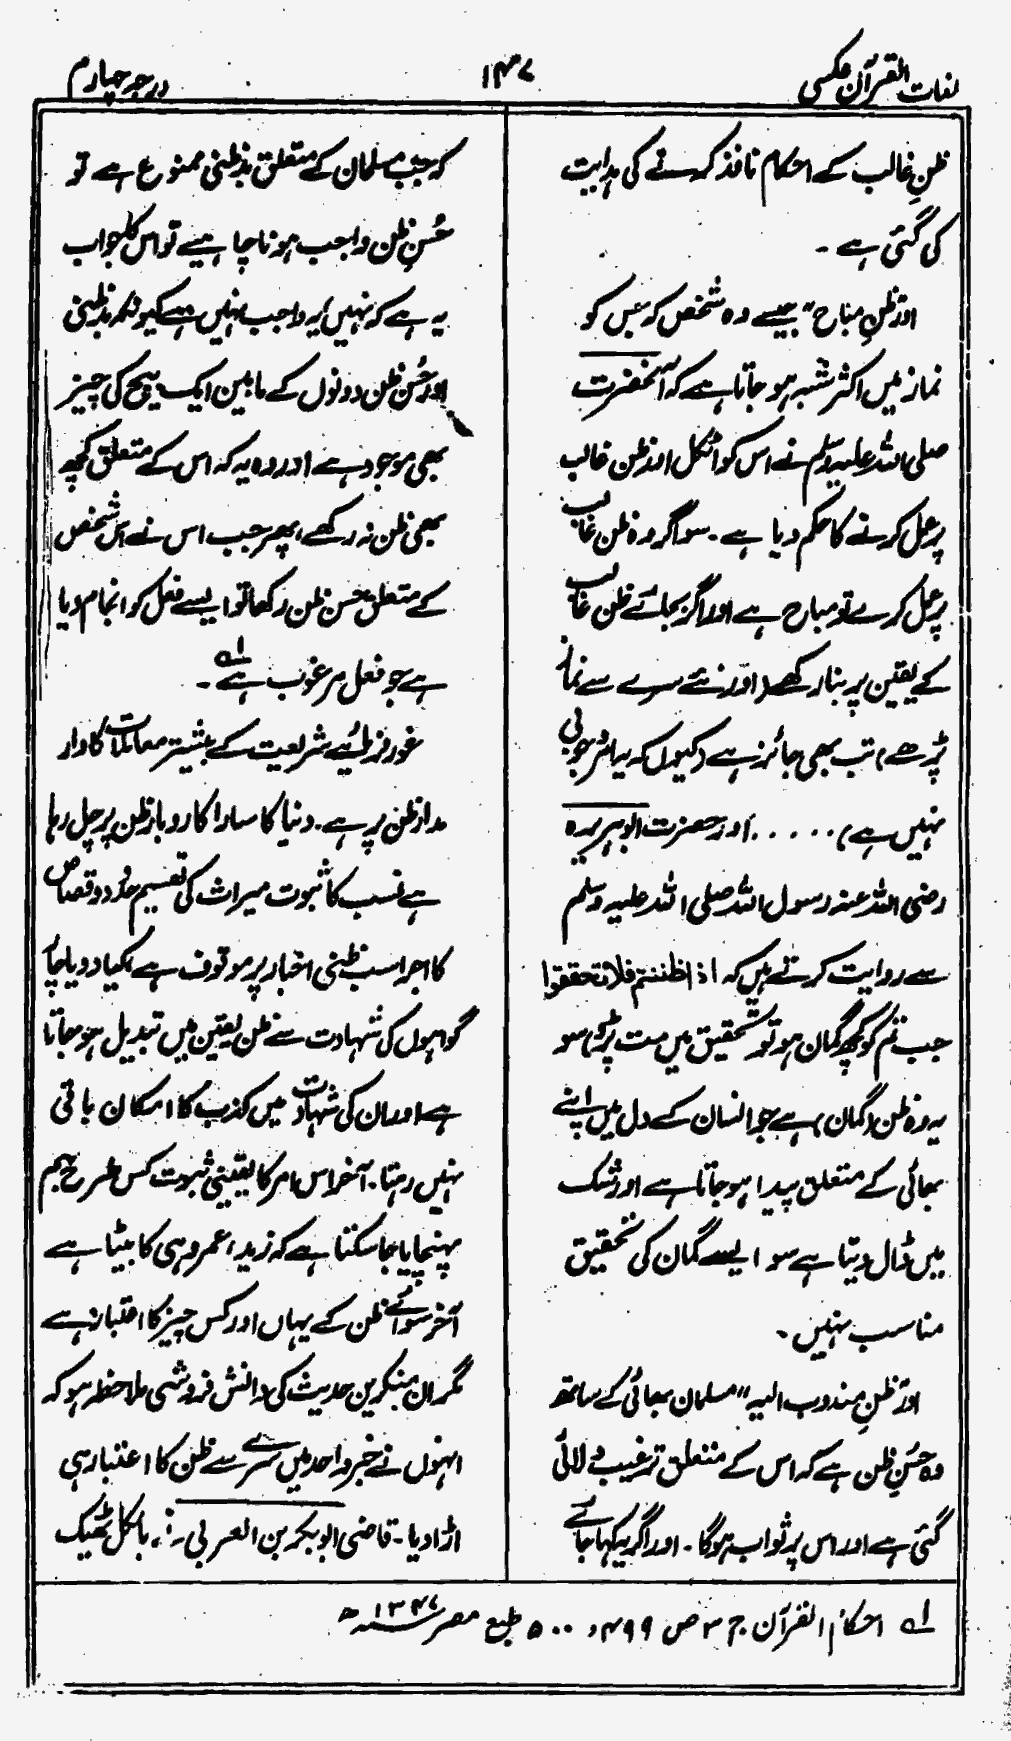 لغات القرآن عکسی
۱۴۷
درجہ چہارم
ظنِ غالب کے احکام نافذ کرنے کی ہدایت
کی گئی ہے ۔
اور ظنِ مباح" جیسے وہ شخص کہ جس کو
نماز میں اکثر شبہ ہو جاتا ہے کہ آنحضرت
صلی اللہ علیہ وسلم نے اس کو اٹکل اور ظن غالب
پر عمل کرنے کا حکم دیا ہے ۔ سو اگر وہ ظن غالب
پر عمل کرے تو مباح ہے اور اگر بجائے ظن غالب
کے یقین پر بنا رکھے (اور نئے سرے سے نماز
پڑھے) تب بھی جائز ہے (کیوں کہ یہ امر وجوبی
نہیں ہے) ..... اور حضرت ابوہریرہ
رضی اللہ عنہ رسول اللہ صلی اللہ علیہ وسلم
سے روایت کرتے ہیں کہ اذا ظننتم فلا تحققوا
جب تم کو کچھ گمان ہو تو تحقیق میں مت پڑو) سو
یہ وہ ظن (گمان) ہے جو انسان کے دل میں اپنے
بھائی کے متعلق پیدا ہو جاتا ہے اور شک
میں ڈال دیتا ہے سو ایسے گمان کی تحقیق
مناسب نہیں ۔
اور ظنِ مندوب الیہ" مسلمان بھائی کے ساتھ
وہ حُسنِ ظن ہے کہ اس کے متعلق ترغیب دلائی
گئی ہے اور اس پر ثواب ہوگا ۔ اور اگر یہ کہا جائے
کہ جب مسلمان کے متعلق بدظنی ممنوع ہے تو
حُسنِ ظن واجب ہونا چاہیے تو اس کا جواب
یہ ہے کہ نہیں یہ واجب نہیں ہے کیونکہ بدظنی
اور حُسنِ ظن دونوں کے مابین ایک بیچ کی چیز
بھی موجود ہے اور وہ یہ کہ اس کے متعلق کچھ
بھی ظن نہ رکھے، پھر جب اس نے اس شخص
کے متعلق حسن ظن رکھا تو ایسے فعل کو انجام دیا
ہے جو فعل مرغوب ہے لہ ۔
غور فرمائیے شریعت کے بیشتر معاملات کا دار
مدار ظن پر ہے ۔ دنیا کا سارا کاروبار ظن پر چل رہا
ہے نسب کا ثبوت میراث کی تقسیم حدود و قصاص
کا اجرا سب ظنی اخبار پر موقوف ہے، کیا دو یا چار
گواہوں کی شہادت سے ظن یقین میں تبدیل ہو جاتا
ہے اور ان کی شہادت میں کذب کا امکان باقی
نہیں رہتا ۔ آخر اس امر کا یقینی ثبوت کس طرح بہم
پہنچایا جا سکتا ہے کہ زید، عمرو ہی کا بیٹا ہے
آخر سوائے ظن کے یہاں اور کس چیز کا اعتبار ہے
مگر ان منکرین حدیث کی دانش فروشی ملاحظہ ہو کہ
انہوں نے خبر واحد میں سرے سے ظن کا اعتبار ہی
اڑا دیا ۔ قاضی ابوبکر بن العربی رح نے بالکل ٹھیک
لہ احکام القرآن ج ۲ ص ۴۹۹ و ۵۰۰ طبع مصر ۱۳۴۷ھ